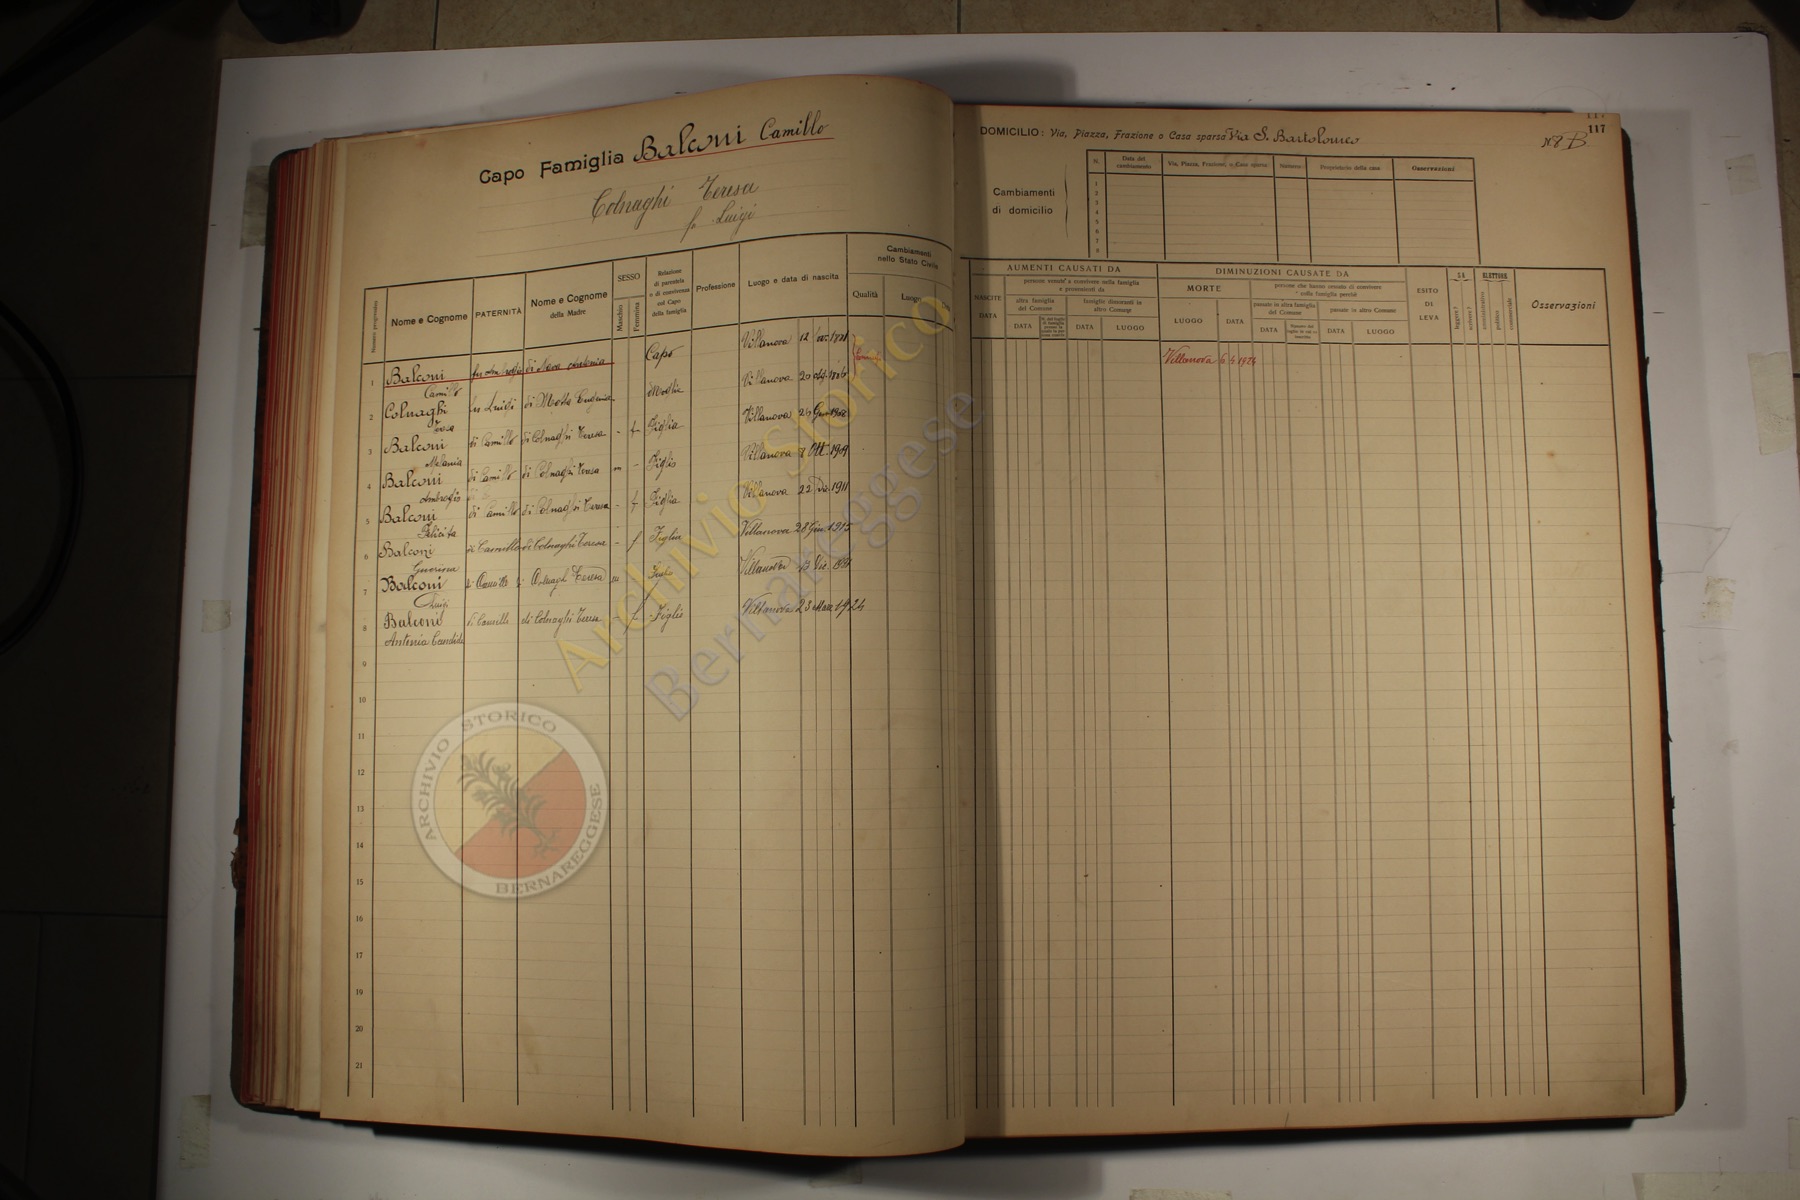 Capo Famiglia Balconi Camillo
Colnaghi Teresa
fu Luigi
Numero progressivo
Nome e Cognome
PATERNITÀ
Nome e Cognome
della Madre
SESSO
Maschio
Femmina
Relazione
di parentela
o di convivenza
col Capo
della famiglia
Professione
Luogo e data di nascita
Cambiamenti
nello Stato Civile
Qualità
Luogo
1 Balconi Camillo fu Ambrogio di Antonia Capo Villanova 12
2 Colnaghi Teresa fu Luigi di Motta Eugenia Moglie Villanova 20
3 Balconi Melania di Camillo di Colnaghi Teresa - f Figlia Villanova
4 Balconi Ambrogio di Camillo di Colnaghi Teresa m - Figlio Villanova 8 Ott. 1909
5 Balconi Felicita di Camillo di Colnaghi Teresa - f Figlia Villanova 22 Dic. 1911
6 Balconi di Camillo di Colnaghi Teresa - f Figlia Villanova 28 Giu. 1915
7 Balconi Luigi di Camillo di Colnaghi Teresa m Villanova 13 Dic.
8 Balconi Antonia Candida di Camillo di Colnaghi Teresa - f Figlia Villanova 23 Mar. 1924
9
10
11
12
13
14
15
16
17
18
19
20
21
117
DOMICILIO: Via, Piazza, Frazione o Casa sparsa Via S. Bartolomeo N. 8 B
Cambiamenti
di domicilio
N.
Data del
cambiamento
Via, Piazza, Frazione, o Casa sparsa
Numero
Proprietario della casa
Osservazioni
1
2
3
4
5
6
7
8
AUMENTI CAUSATI DA
NASCITE
DATA
persone venute a convivere nella famiglia
e provenienti da
altra famiglia
del Comune
DATA
famiglie dimoranti in
altro Comune
DATA
LUOGO
DIMINUZIONI CAUSATE DA
MORTE
LUOGO
DATA
persone che hanno cessato di convivere
nella famiglia perchè
passate in altra famiglia
del Comune
DATA
passate in altro Comune
DATA
LUOGO
ESITO
DI
LEVA
SA
leggere ?
scrivere ?
ELETTORE
amministrativo
politico
commerciale
Osservazioni
Villanova 6 4 1924
Archivio Storico
Bernareggese
ARCHIVIO STORICO
BERNAREGGESE